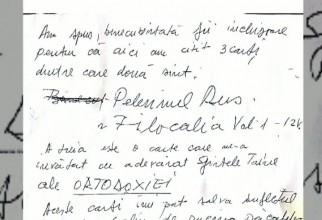 Am spus, binecuvântată fii închisoare
pentru că aici am citit 3 cărți
dintre care două sînt:
Pelerinul Rus.
2 Filocalia Vol 1 - 12
A treia este o carte care m-a
învățat cu adevărat Sfintele Taine
ale ORTODOXIEI
Aceste cărți îmi pot salva sufletul